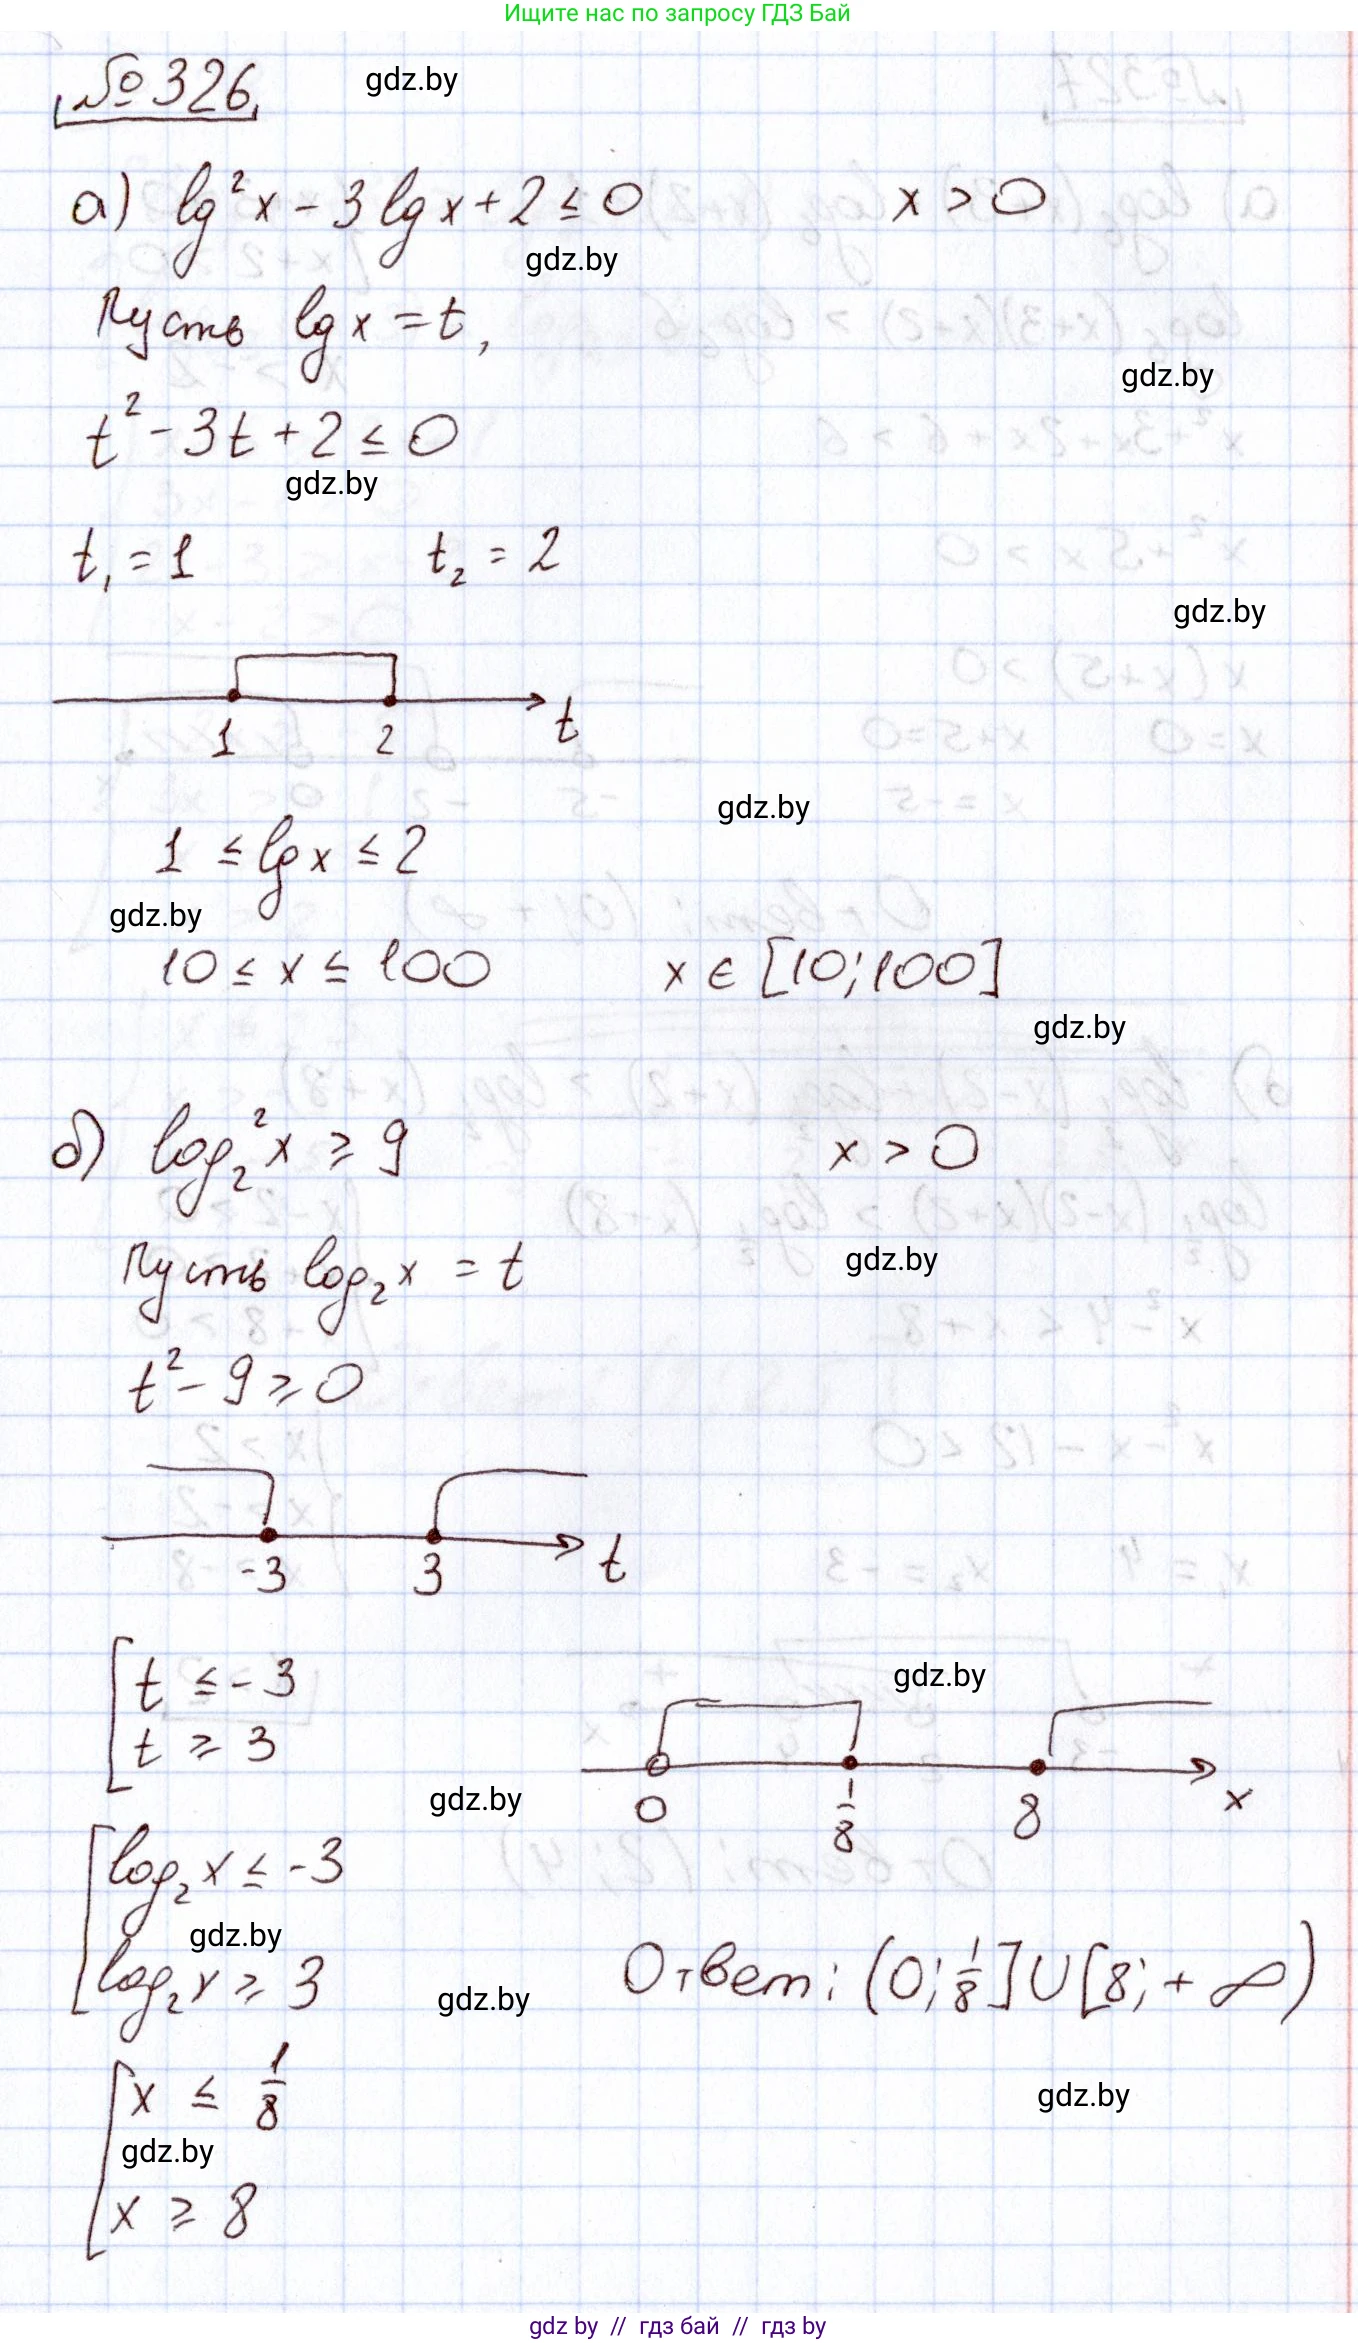 Ищите нас по запросу ГДЗ Бай
№326 gdz.by
а) lg²x - 3lgx + 2 ≤ 0 x > 0
gdz.by
Пусть lgx = t,
gdz.by
t² - 3t + 2 ≤ 0
gdz.by
t₁ = 1 t₂ = 2
gdz.by
1 2 t
gdz.by
1 ≤ lgx ≤ 2
gdz.by
10 ≤ x ≤ 100 x ∈ [10; 100]
gdz.by
б) log₂²x ≥ 9 x > 0
Пусть log₂x = t gdz.by
t² - 9 ≥ 0
-3 3 t
[ t ≤ -3
t ≥ 3
gdz.by
0 1/8 8 x
gdz.by
[ log₂x ≤ -3
gdz.by
log₂x ≥ 3
gdz.by
Ответ: (0; 1/8] ∪ [8; +∞)
[ x ≤ 1/8
gdz.by
gdz.by
x ≥ 8
gdz by // гдз бай // гдз by